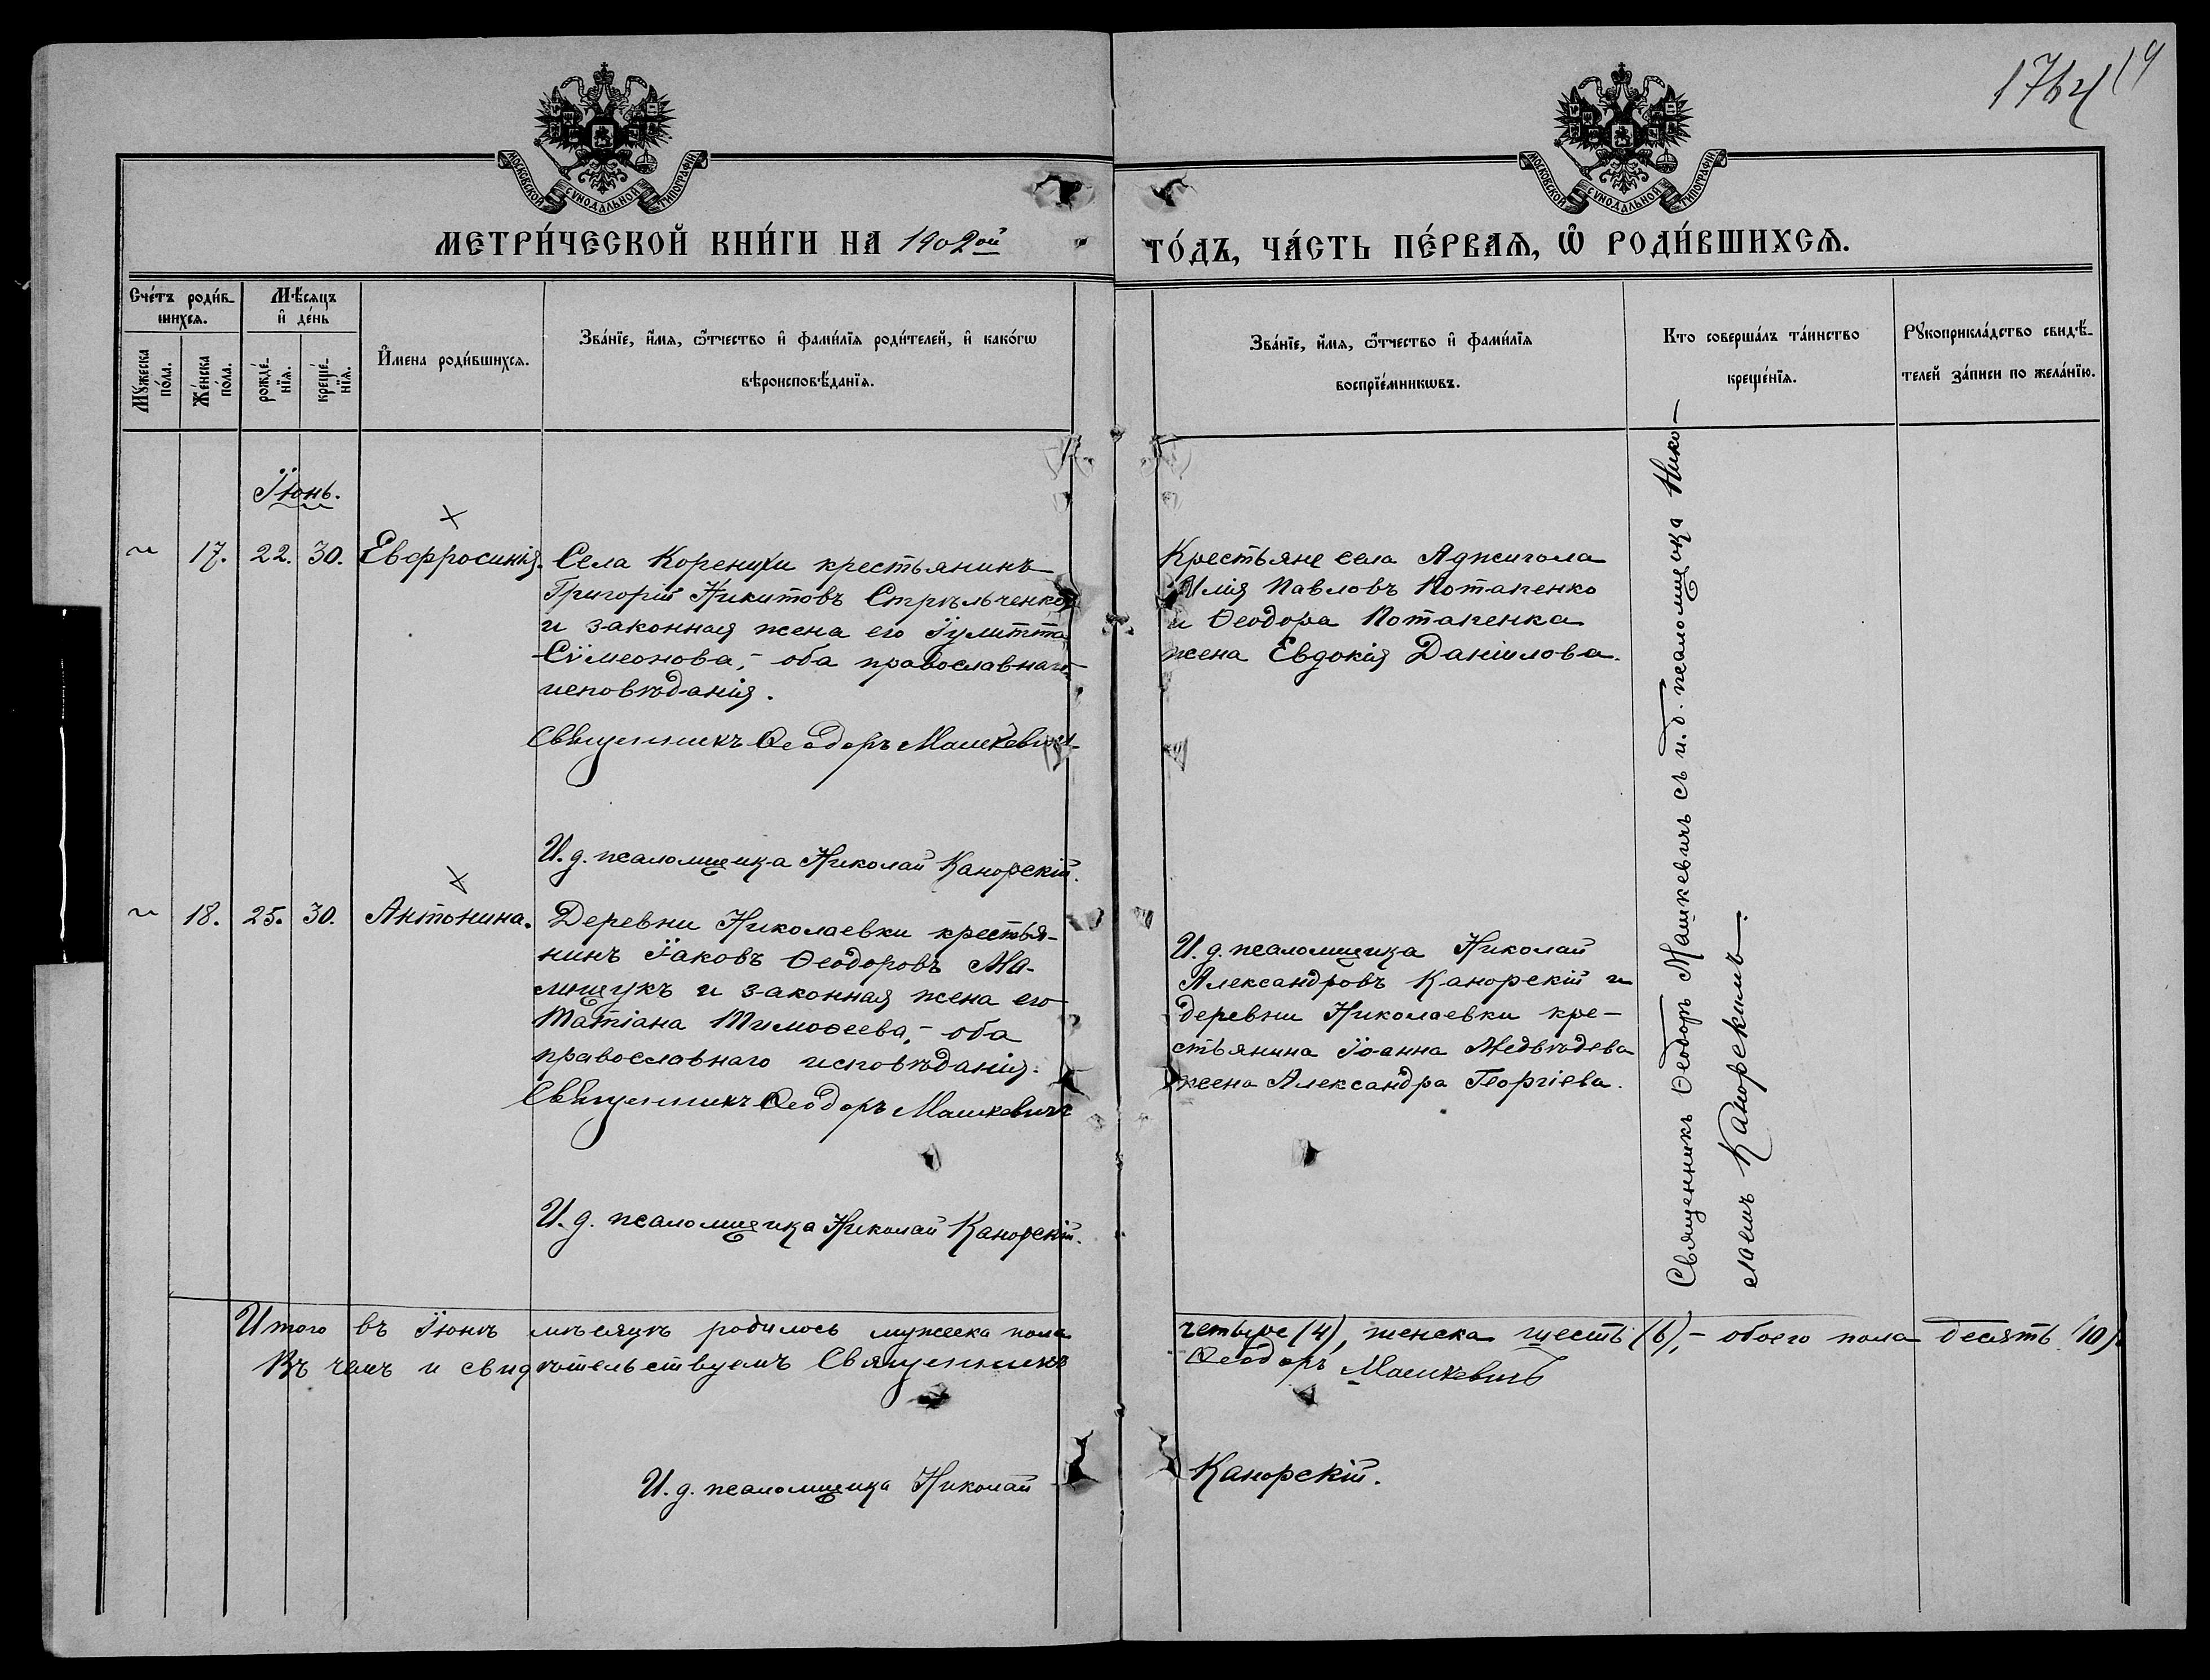 176 об 19
МОСКОВСКОЙ СѴНОДАЛЬНОЙ ТИПОГРАФІИ
МОСКОВСКОЙ СѴНОДАЛЬНОЙ ТИПОГРАФІИ
МЕТРИ́ЧЕСКОЙ КНИ́ГИ НА 1902ой
ГО́ДЪ, ЧА́СТЬ ПЕ́РВАѦ, Ѽ РОДИ́ВШИХСѦ.
Сче́тъ роди́в-
шихсѧ.
Мꙋ́жеска
по́ла.
Же́нска
по́ла.
Мѣ́сѧцъ
и҆ де́нь
рожде́-
нїѧ.
креще́-
нїѧ.
И҆мена роди́вшихсѧ.
Зва́нїе, и҆́мѧ, ѻ҆́тчество и҆ фами́лїѧ роди́телей, и҆ како́гѡ
вѣроисповѣ́данїѧ.
Зва́нїе, и҆́мѧ, ѻ҆́тчество и҆ фами́лїѧ
воспрїе́мникѡвъ.
Кто соверша́лъ та́инство
креще́нїѧ.
Рꙋкоприкла́дство свидѣ́-
телей за́писи по жела́нїю.
Їюнь.
17. 22. 30. Евфросинія.
Села Коренихи крестьянинъ
Григорій Никитовъ Стрѣльченко
и законная жена его Їулитта
Сѵмеонова,- оба православнаго
исповѣданія.
Священникъ Ѳеодоръ Машкевичъ
И.д. псаломщика Николай Канорскій.
Крестьяне села Аджигола
Илія Павловъ Потапенко
и Ѳеодора Потапенка
жена Евдокія Даніилова.
18. 25. 30. Антонина.
Деревни Николаевки крестья-
нинъ Їаковъ Ѳеодоровъ Ма-
мщукъ и законная жена его
Татіана Тимоѳеева,- оба
православнаго исповѣданія.
Священникъ Ѳеодоръ Машкевичъ
И.д. псаломщика Николай Канорскій.
И.д. псаломщика Николай
Александровъ Канорскій и
деревни Николаевки кре-
стьянина Їоанна Медвѣдева
жена Александра Георгіева.
Священникъ Ѳеодоръ Машкевичъ съ и.д. псаломщика Нико-
лаемъ Канорскимъ.
Итого въ Їюнѣ мѣсяцѣ родилось мужеска пола четыре (4), женска шесть (6),- обоего пола десять (10).
Въ чемъ и свидѣтельствуемъ Священникъ Ѳеодоръ Машкевичъ
И.д. псаломщика Николай Канорскій.